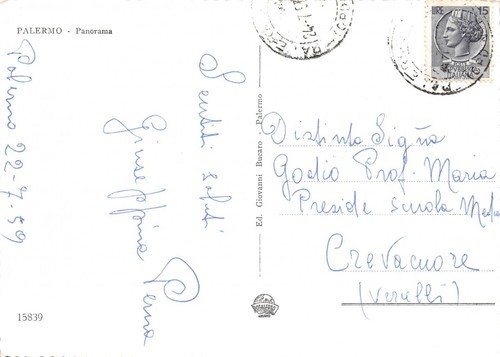 PALERMO - Panorama
Palermo 22-7-59
Sentiti saluti
Giuseppina Perna
Ed. Giovanni Bucaro - Palermo
LIRE 15
Distinta Sig.na
Godio Prof. Maria
Preside Scuola Media
Crevacuore
(Vercelli)
15839